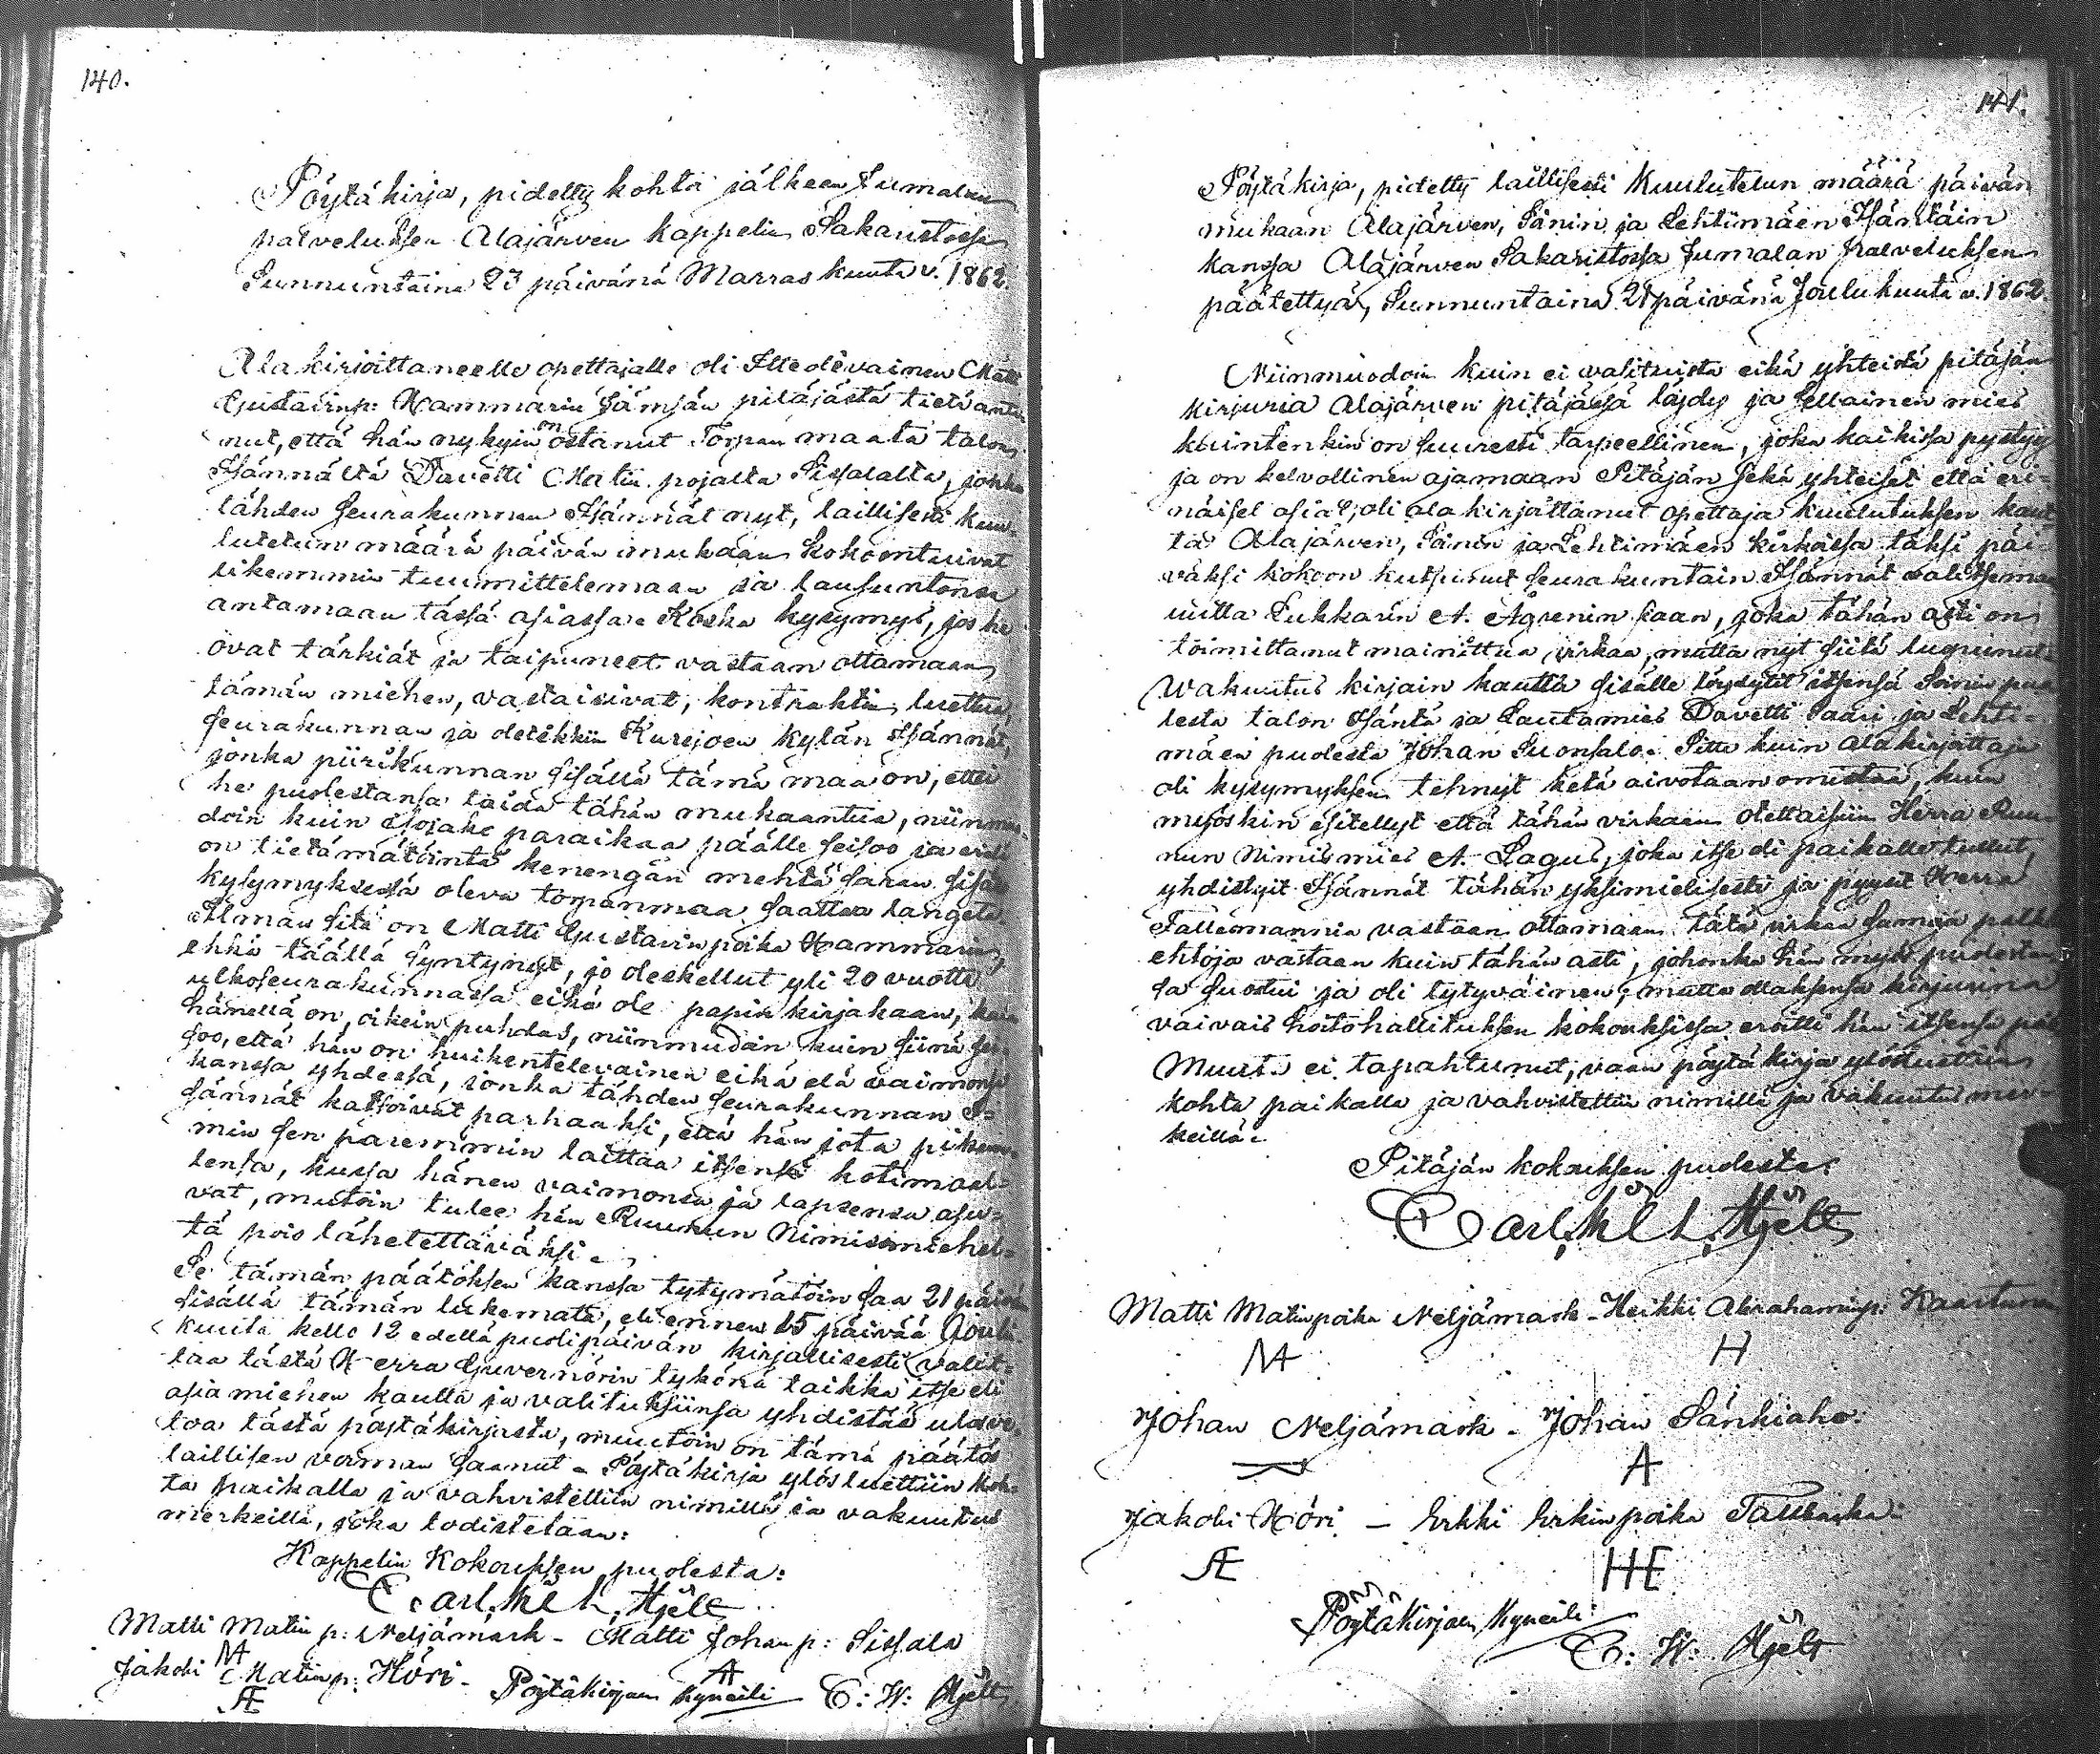 140.
Pöytäkirja, pidetty kohta jälkeen Jumalan
palveluksen Alajärven kappelin Sakaristossa
Sunnuntaina 23 päivänä Marraskuuta v. 1862.
Ala kirjoittaneelle opettajalle oli Itteolevainen Matti
Gustavinp: Hammarin Jämsän pitäjästä tietä antanut,
nut, että hän nykyin on ostanut Torpan maata talon
Isännältä Davetti Matin pojalta Sissalalta, jonka
tähden seurakunnan Isännät nyt, laillisesti kuu-
lutetun määrä päivän mukaan kokoontuivat
likemmin tuumittelemaan ja lausuntonsa
antamaan tässä asiassa. Koska kysymys, jos he
ovat tärkiät ja taipuneet vastaan ottamaan
tämän miehen, vastaisivat, kontrahtin luettua,
seurakunnan ja oletikkin Kurejoen kylän Isännät,
jonka piirikunnan sisällä tämä maa on, ettei
he puolestansa taida tähän mukaantua, niinmuo-
doin kuin Isojako paraikaa päälle seisoo ja vielä
on tietämätöintä kenengän mehtä saran sisään
kysymyksessä oleva torpanmaa saattaa langeta.
Ilman sitä on Matti Gustavinpoika Hammarin,
ehkä täällä syntynyt, jo oleskellut yli 20 vuotta
ulkoseurakunnassa eikä ole papin kirjakaan, kuin
hänellä on, oikein puhdas, niinmuodoin kuin siinä sei-
soo, että hän on huikentelevainen eikä elä vaimonsa
kanssa yhdessä, jonka tähden seurakunnan I-
sännät katsoivat parhaaksi, että hän jota pikem-
min sen paremmin laittaa itsensä kotimaal-
lensa, kussa hänen vaimonsa ja lapsensa asu-
vat, mutoin tulee hän Ruunun Nimismiehel-
tä pois lähetettäväksi.
Se tämän päätöksen kanssa tytymätöin saa 21 päivän
sisällä tämän lukemata, eli ennen 15 päivää Joulu
kuuta kello 12 edellä puolipäivän kirjallisesti valit-
taa tästä Herra Guvernörin tykönä taikka itse eli
asiamiehen kautta ja valituksiinsa yhdistää ulosve-
toa tästä pöytäkirjasta, muutoin on tämä päätös
laillisen voiman saanut. Pöytäkirja ylösluettiin koh-
ta paikalla ja vahvistettiin nimillä ja vakuutus
merkeillä, joka todistetaan:
Kappelin Kokouksen puolesta:
Carl. Wilh. Hjelt
Matti Matin p: Neljämark - Matti Johan p: Sissala
Jakobi Matin p: Höri - Pöytäkirjan kyneili C: W: Hjelt
141.
Pöytäkirja, pidetty laillisesti Kuulutetun määrä päivän
mukaan Alajärven, Soinin ja Lehtimäen Isäntäin
kanssa Alajärven Sakaristossa Jumalan palveluksen
päätettyä, Sunnuntaina 21 päivänä Joulukuuta v. 1862.
Niinmuodoin kuin ei valituista eikä yhteistä pitäjän
kirjuria Alajärven pitäjässä löydy ja sellainen mies
kuintenkin on suuresti tarpeellinen, joka kaikissa pystyy
ja on kelvollinen ajamaan Pitäjän sekä yhteiset että eri-
näiset asiat, oli ala kirjottanut opettaja kuulutuksen kaut-
ta Alajärven, Soinin ja Lehtimäen kirkoissa täksi päi-
väksi kokoon kutsunut seurakuntain Isännät valitsemaan
uutta Lukkarin A. Ågrenin siaan, joka tähän asti on
toimittanut mainittua virkaa, mutta nyt siitä luopunut.
Wakuutus kirjain kautta sisälle löydytit itsensä Soinin puo-
lesta talon Isäntä ja Lautamies Davetti Saari ja Lehti-
mäen puolesta Johan Suonsalo. Sitte kuin alakirjottaja
oli kysymyksen tehnyt ketä aivotaan omistaa, kuin
myöskin esitellyt että tähän virkaan otettaisiin Herra Ruu-
nun Nimismies A. Lagus, joka itse oli paikalle tullut,
yhdistyit Isännät tähän yksimielisesti ja pyysit Herra
Fallesmannia vastaan ottamaan tätä virkaa samoja palkka
ehtoja vastaan kuin tähän asti, johonka hän myös puolestan-
sa suostui ja oli tytyväinen, mutta ollaksensa kirjurina
vaivais hoitohallituksen kokouksissa eroitti hän itsensä pois
Muuta ei tapahtunut, vaan pöytäkirja ylösluettiin
kohta paikalla ja vahvistettiin nimillä ja vakuutus mer-
keillä.
Pitäjän kokouksen puolesta:
Carl. Wilh. Hjelt
Matti Matinpoika Neljämark - Heikki Abrahaminp: Kaartunen
Johan Neljämark - Johan Sänkiaho.
Jakobi Höri - Erkki Erkinpoika
Pöytäkirjan kyneili
C: W: Hjelt